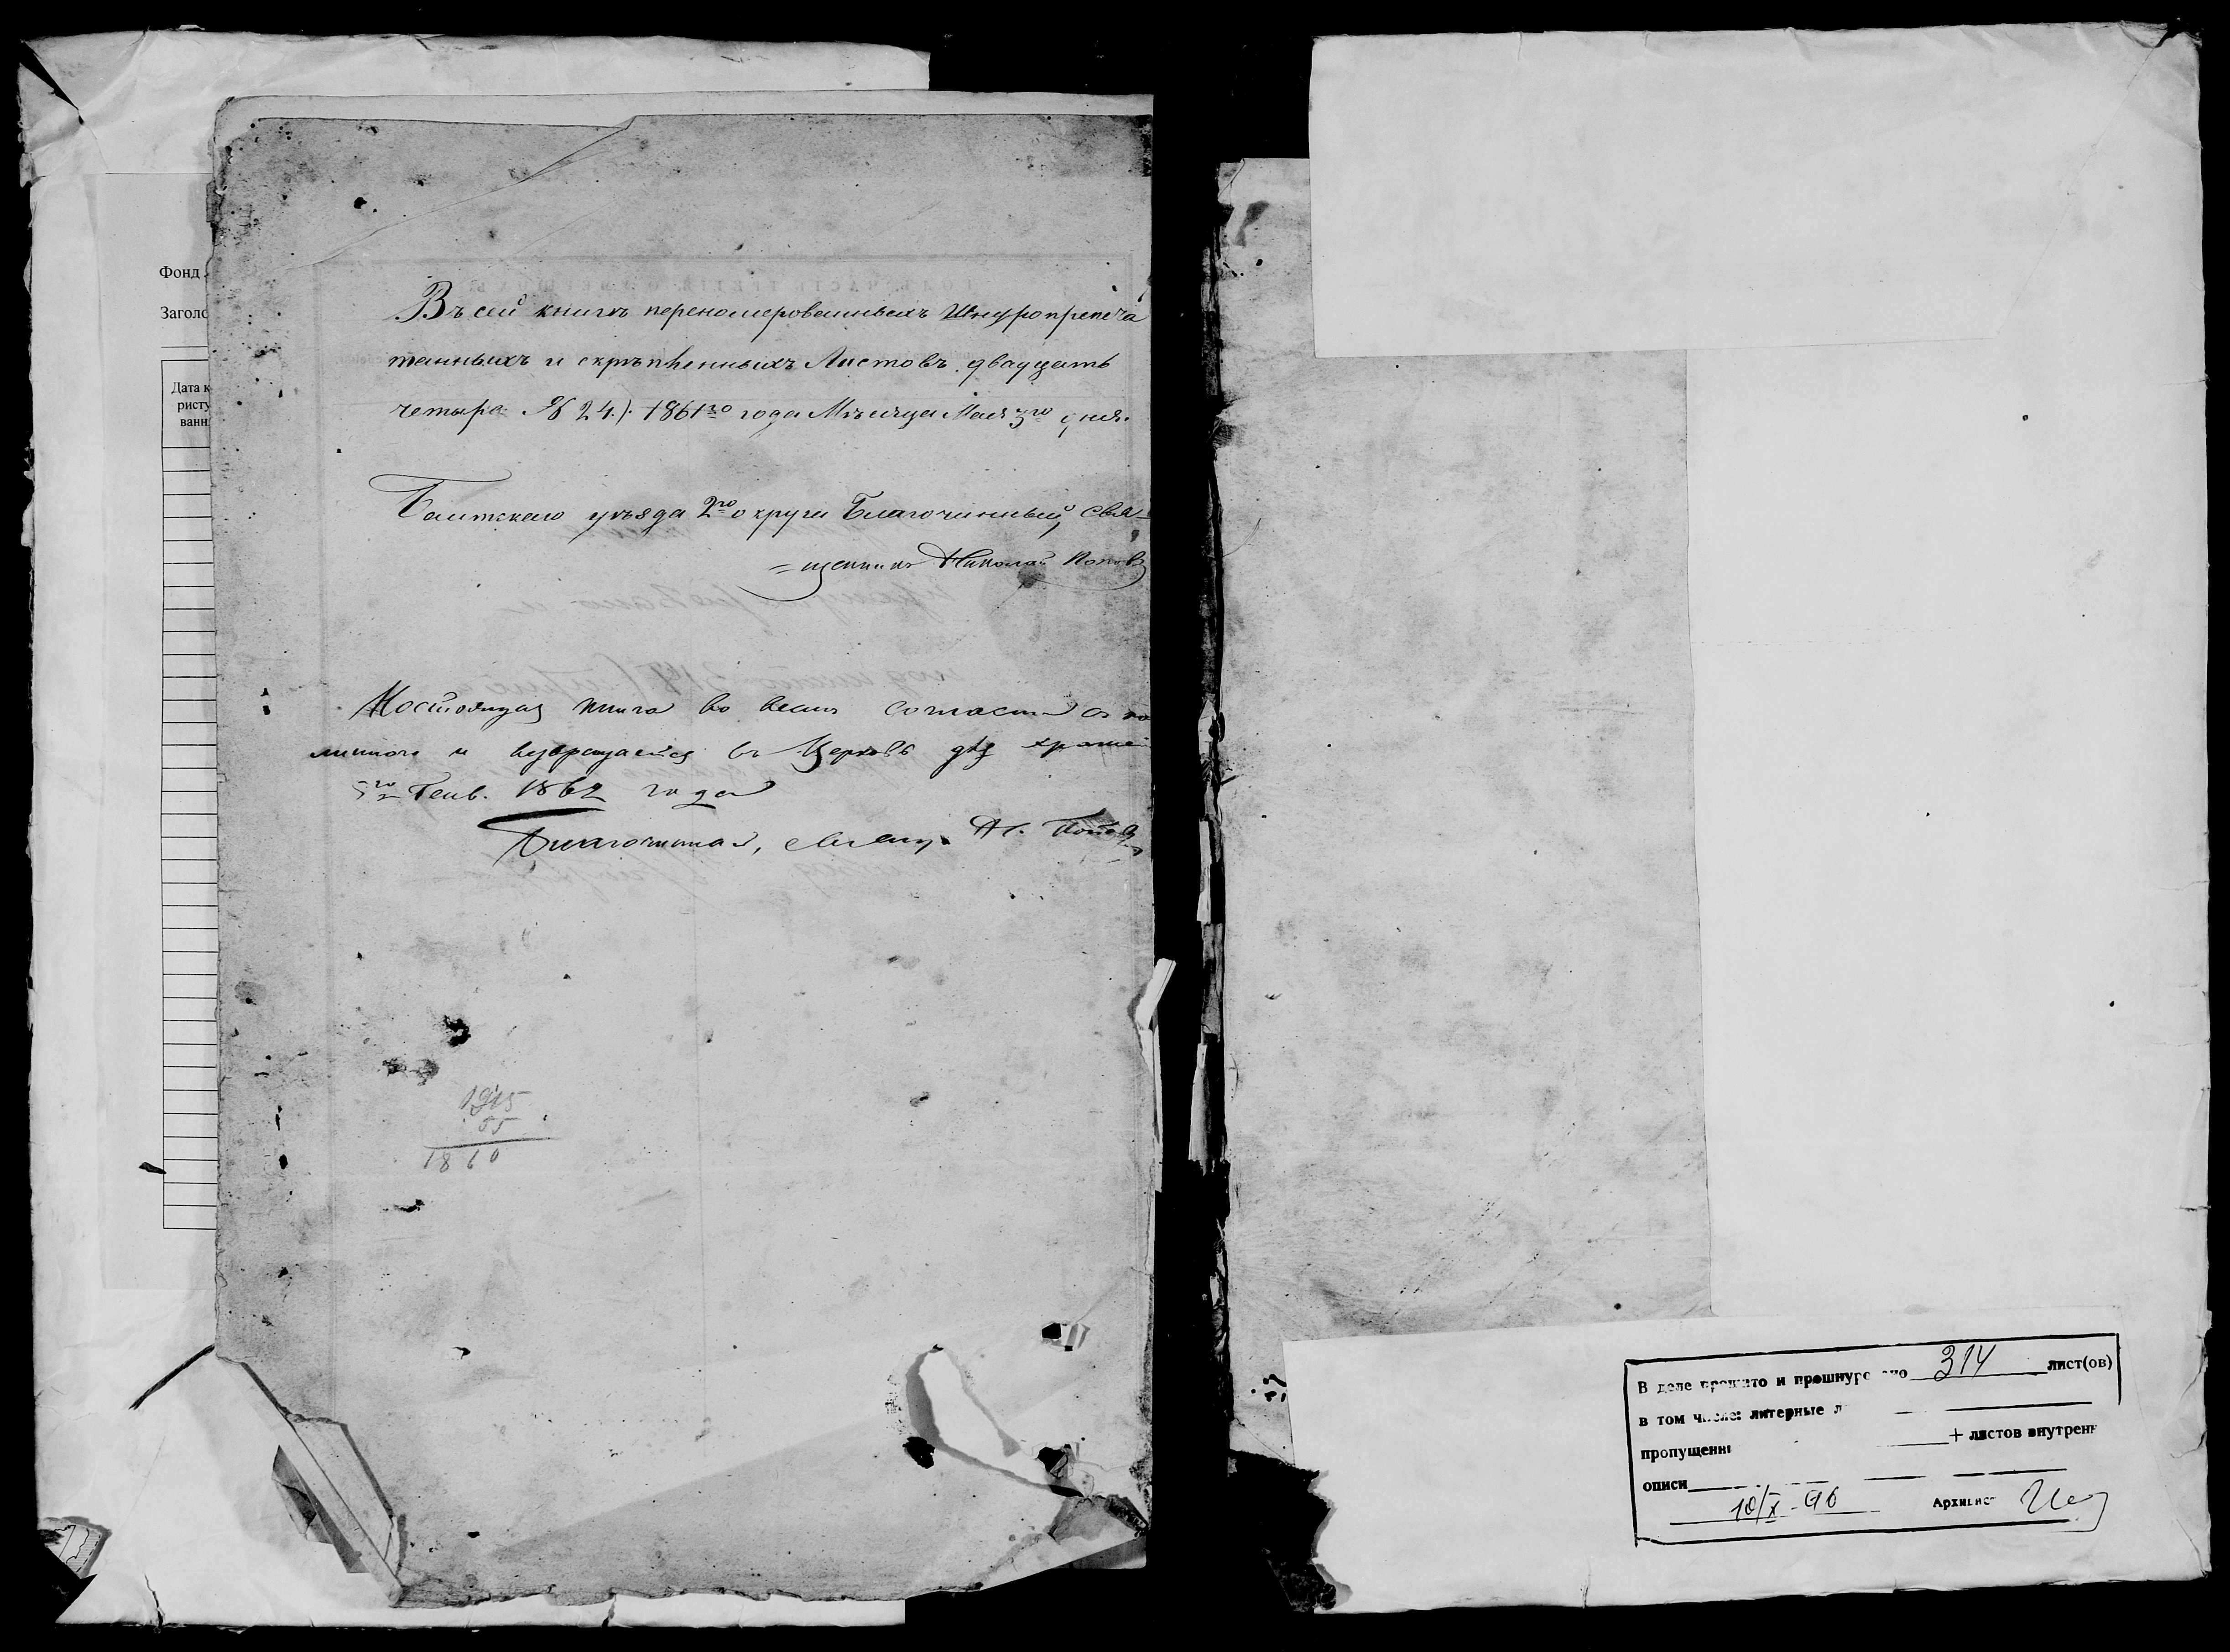 Фонд
Заголо
Дата к
ристу
ванн
Въ сей книгѣ переномерованныхъ Шнуропрепеча
танныхъ и скрѣпленныхъ Листовъ двадцать
четыре № 24.). 1861го года Мѣсяца Мая 3го дня.
уѣзда 2го округа Благочинный, Свя-
=щенникъ Николай Попов
Книга во всемъ согласна съ по
и возвращается въ Церковь для хране
5го Генв. 1862 года
Благочинный, Свящ. Н. Попов
1915
55
1860
В деле прошито и прошнуровано 314 лист(ов)
в том числе: литерные л
пропущенны + листов внутренн
описи
10/X-96 Архивист